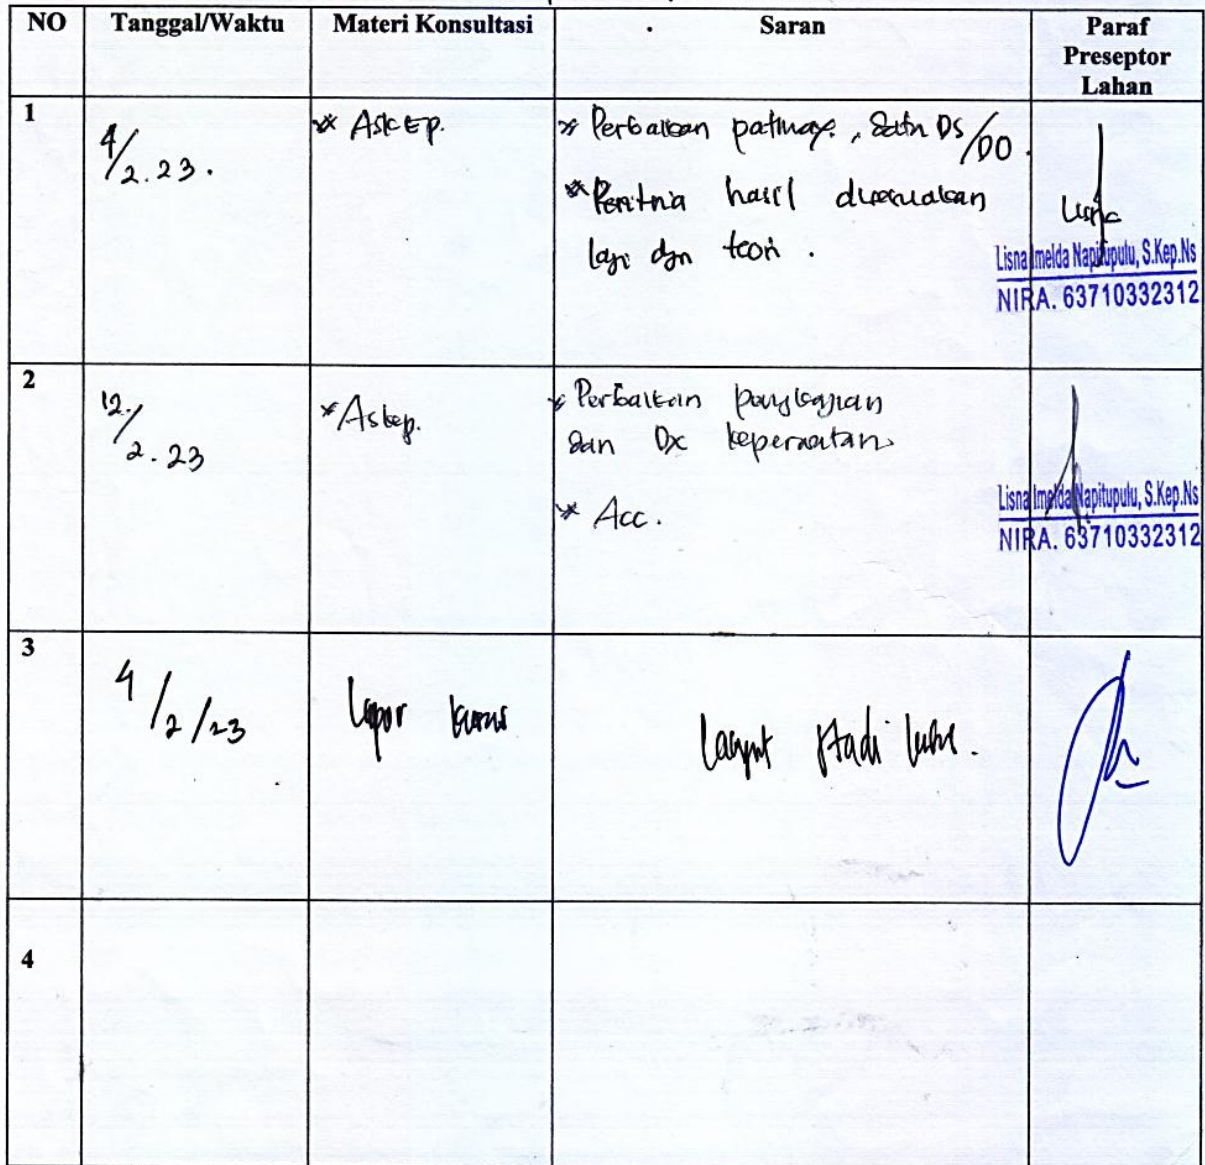 NO Tanggal/Waktu Materi Konsultasi Saran Paraf
Preseptor
Lahan
1
4/2.23.
* Askep.
* Perbaikan pathway, data DS/DO.
* hasil disesuaikan
lagi dgn teori.
Lisna Imelda Napitupulu, S.Kep.Ns
NIRA. 63710332312
2
12/2.23
* Askep.
* Perbaikan pengkajian
dan Dx keperawatan
* Acc.
Lisna Imelda Napitupulu, S.Kep.Ns
NIRA. 63710332312
3
4/2/23
Lapor kasus
Lanjut
4